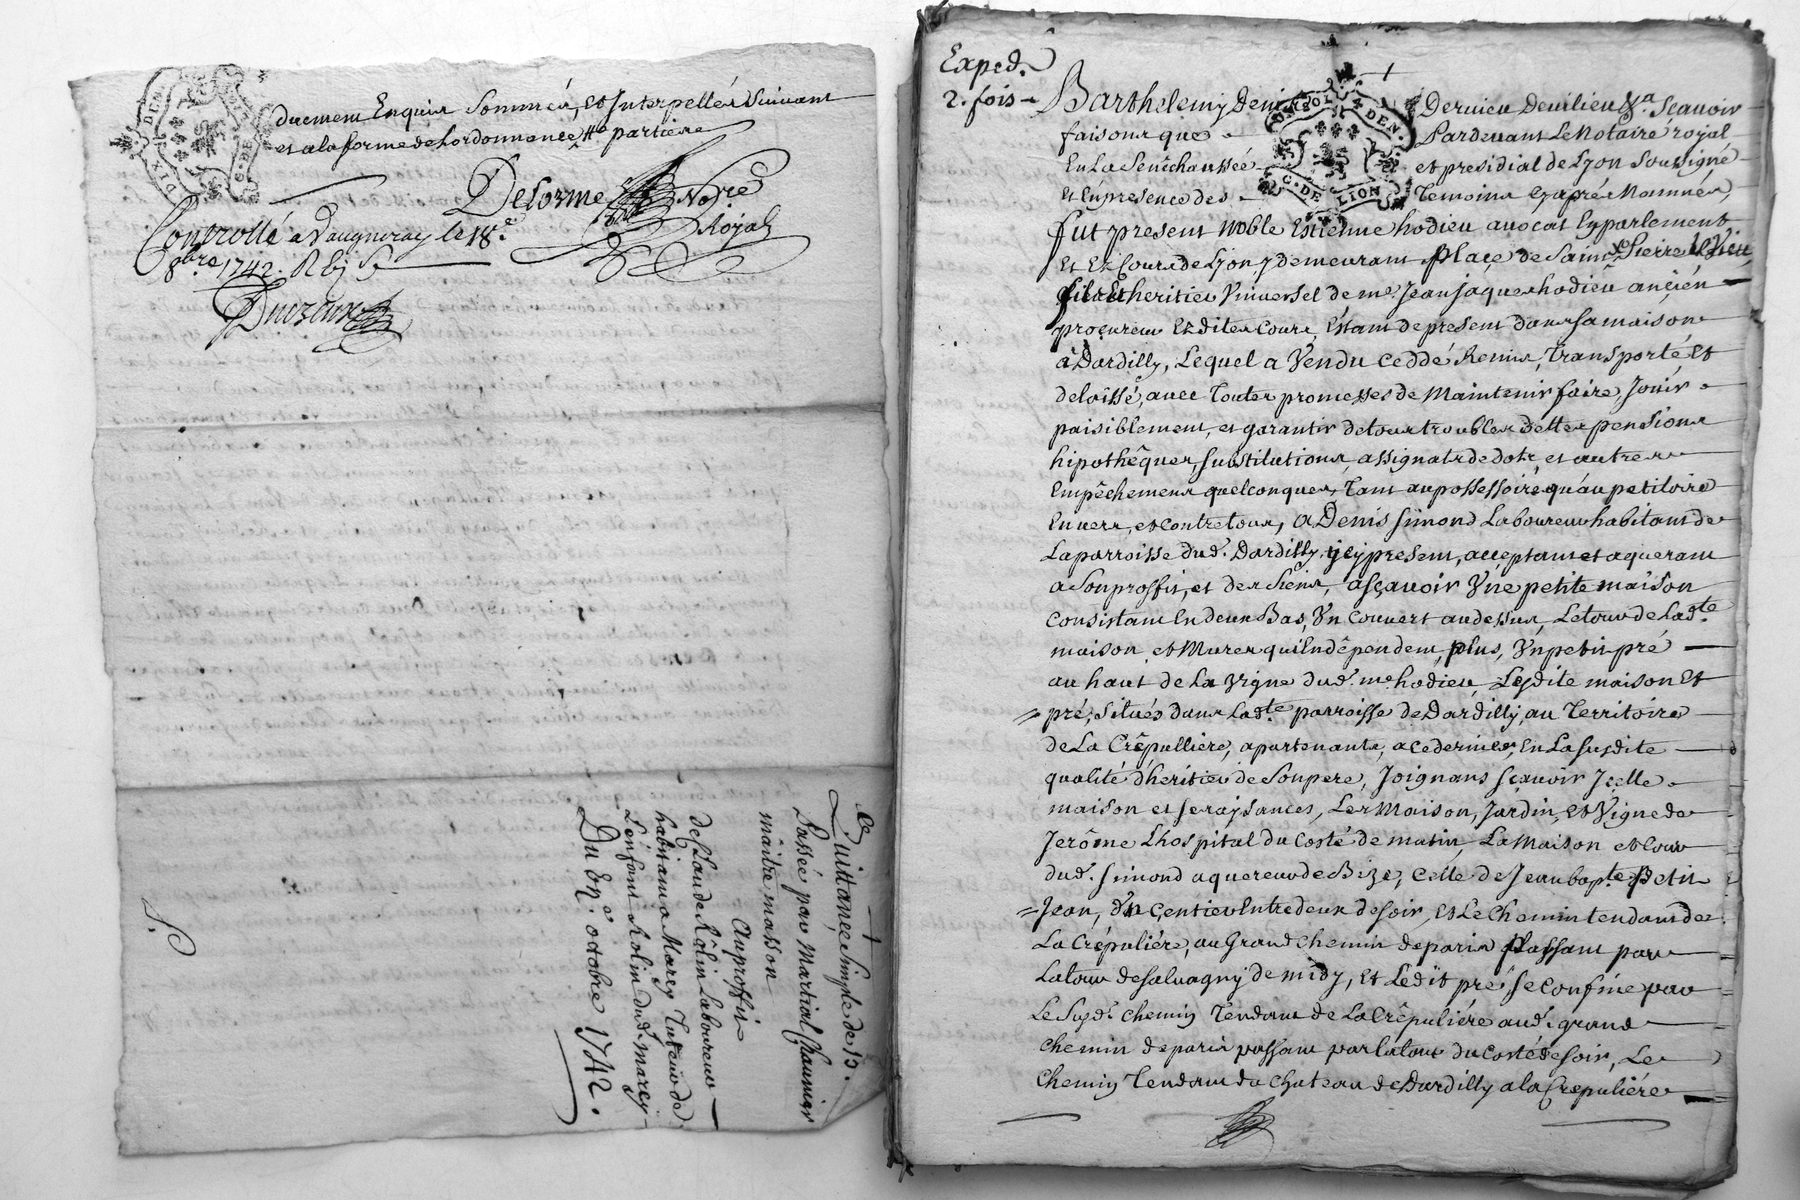 duement Enquis Sommés, et Interpellés Suivant
et a la forme de Lordonnance, partie
Delorme No.re
Royal
Controllé a Vaugneray le 18.e
8bre 1742. R
DIX DEN.
G. DE
ce
Quittance Simple de 15.
Passée par Martial Chaumier
maître masson
Au proffit
de Claude Rolin Laboureur
habitant a Marcy Tuteur de
Lenfant Rolin dud. marcy
Du octobre 1742.
Exped.
2. fois
Barthelemy Deni Dervieu Devilieu Sr. Scavoir
faisons que Pardevant Le Notaire royal
En La Senêchaussée et presidial de Lyon Soussigné
et En presence des Temoins Cy aprés Nommés,
DEN.
G. DE LION
fut present Noble Estienne hodieu avocat En parlement
Et Ez Cours de Lyon, y demeurant place de Saint Pierre le Vieu,
fils Et heritier Universel de me. Jean Jaques hodieu ançien
proçureur Ez dites Cours, Estant de present dans sa maison
à Dardilly, Lequel a Vendu ceddé Remis, Transporté, Et
delaissé, avec Toutes promesses de Maintenir faire, Jouir
paisiblement, et garantir de tous troubles dettes pensions
hipothêques, substitutions, assignats de dots, et autres
Empêchemens quelconques, Tant au possessoire qu'au petitoire
Envers, et Contre tous, a Denis Simond Laboureur habitant de
La parroisse dud. Dardilly, ycy present, acceptant et aquerant
a Son proffit, et des Siens, asçavoir Vne petite maison
Consistant En deux Bas, Vn Couvert au dessus, Le tour de Lad.te
maison et Mures qui En dêpendent, plus, Vn petit pré
au haut de La Vigne dud. me. hodieu, Lesdite maison Et
pré, Situés dans Lad.te parroisse de Dardilly, au Territoire
de La Crêpulliére, apartenants, a ce dernier, En La susdite
qualité d'heritier de Son pere, Joignans sçavoir Jçelle
maison et ses aysances, Les Maison, Jardin, et Vigne de
Jerôme Lhospital du Costé de matin, La Maison et Cour
dud. Simond aquereur de Bize, Celle de Jean bap.te Petit
Jean, Vn Sentier Entre deux de soir, Et Le Chemin tendant de
La Crépuliére, au Grand Chemin de paris passant par
La tour de Salvagny de midy, et Ledit pré se Confine par
Le Susd. Chemin Tendant de La Crêpuliére aud. grand
Chemin de paris passant par La tour du Costé de soir, Le
Chemin Tendant du Chateau de Dardilly a la Crepuliére